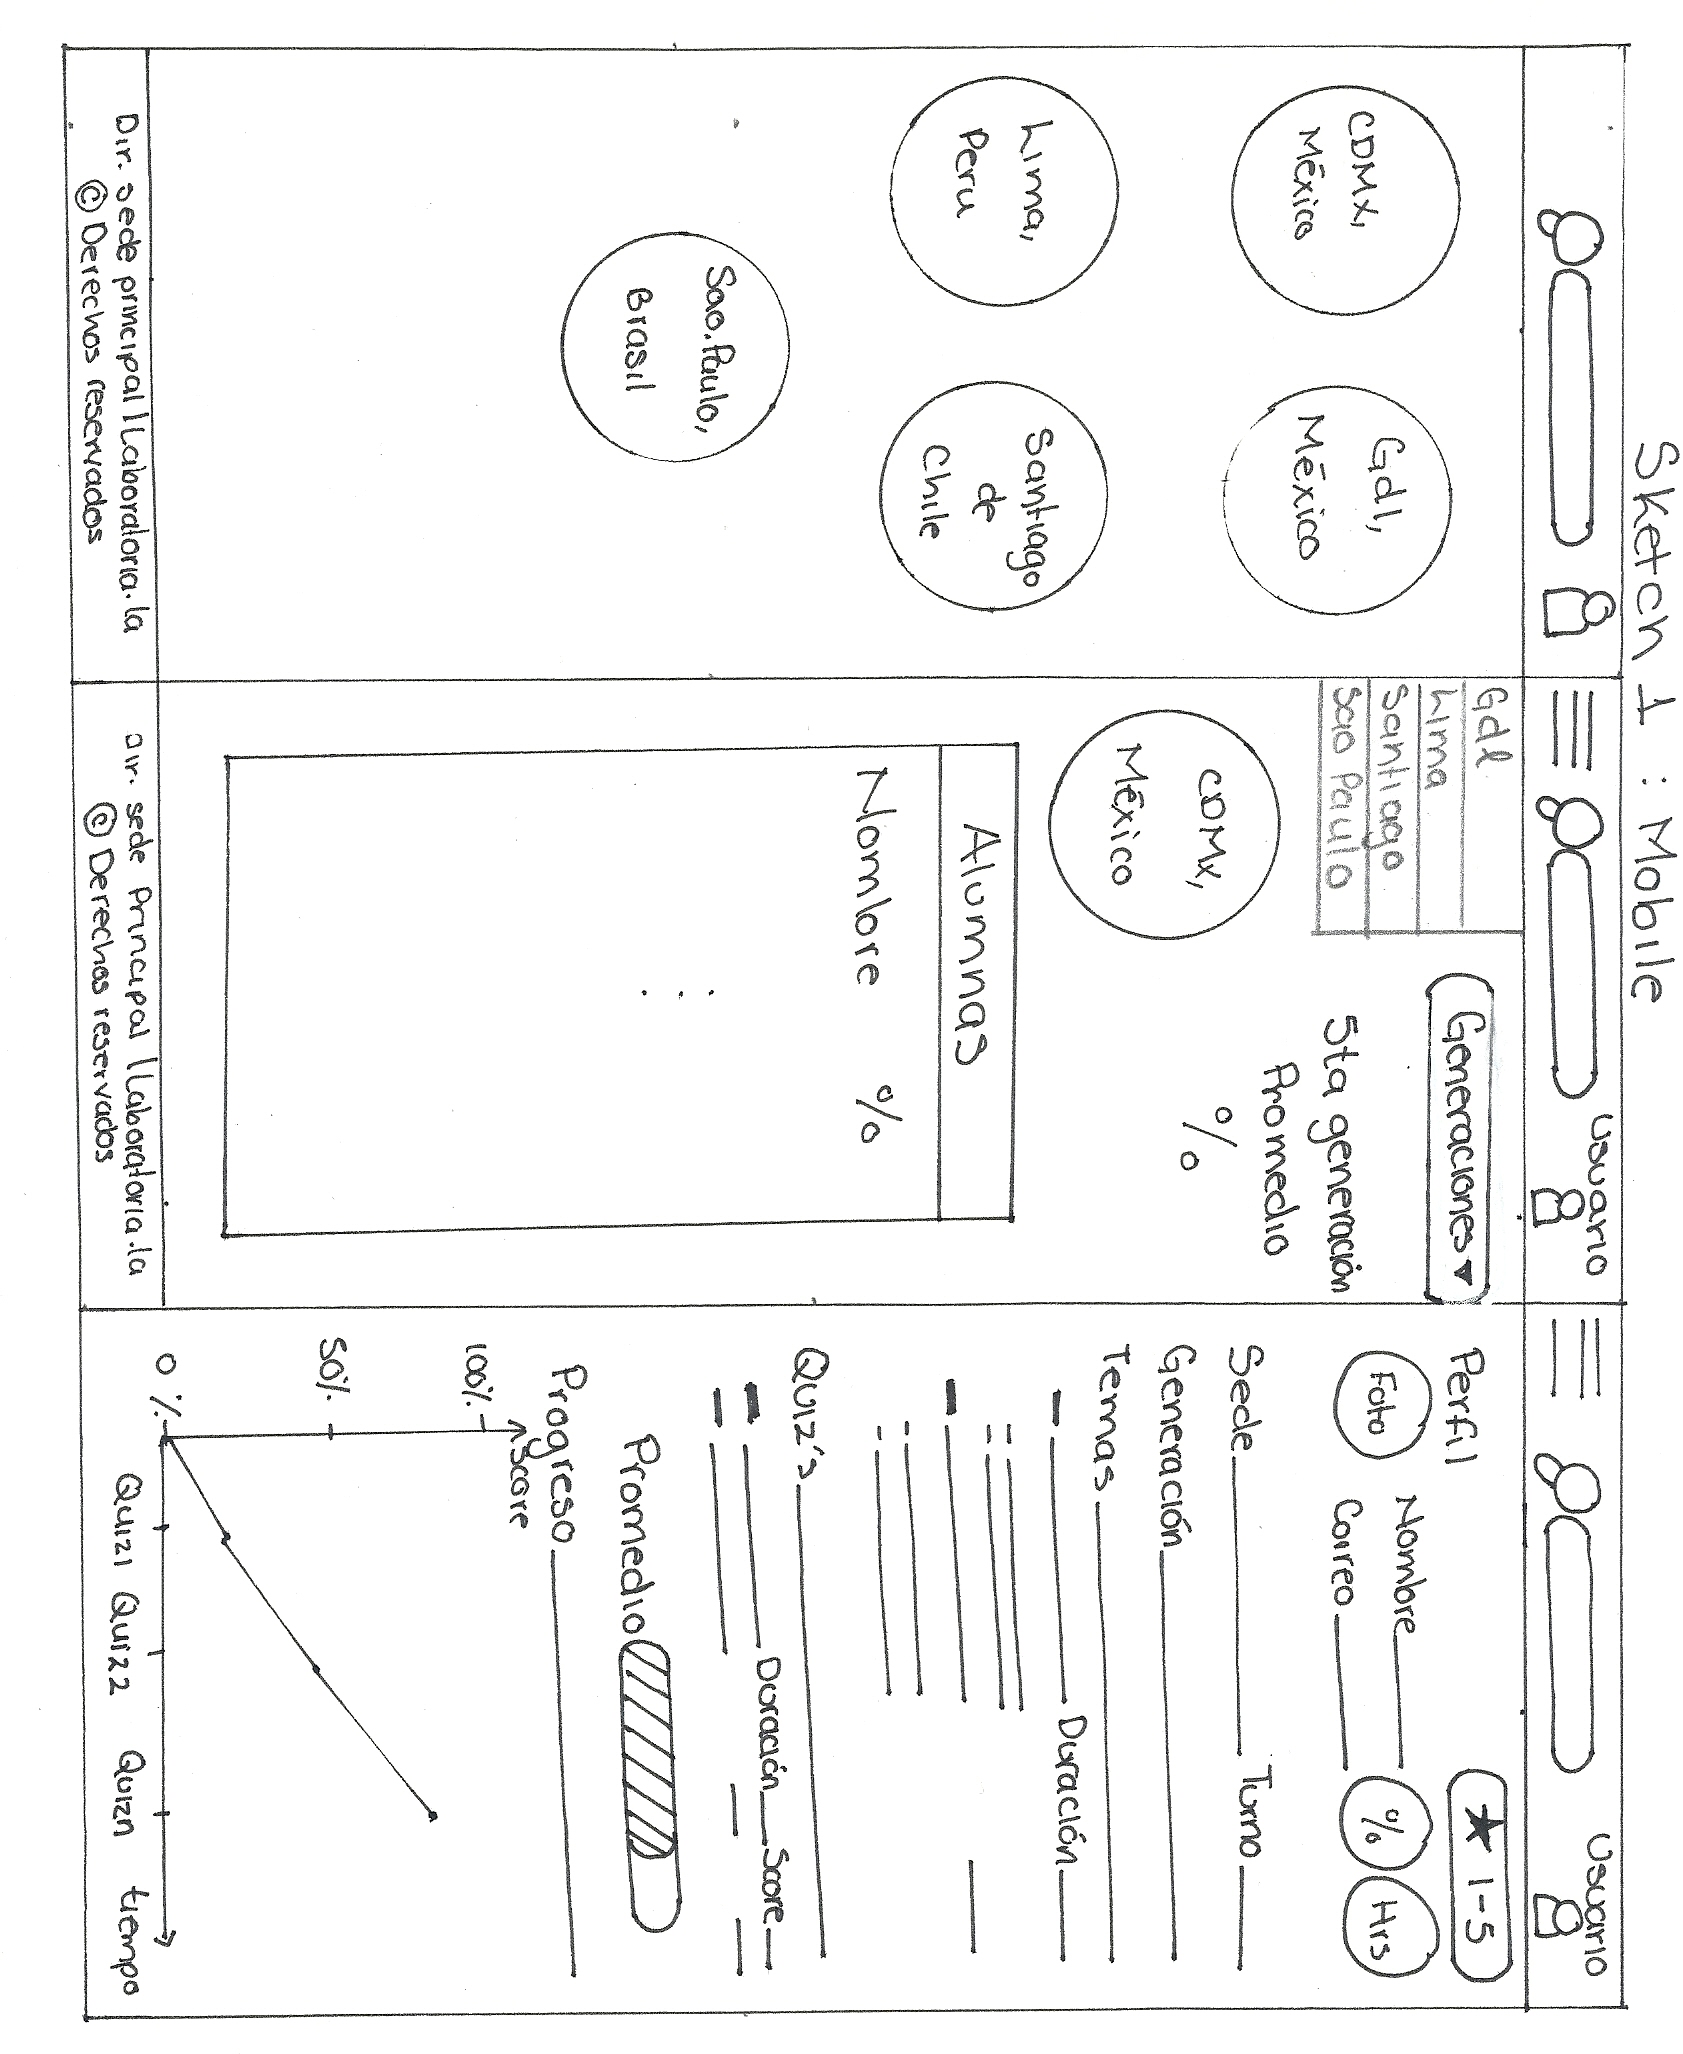 Sketch 1 : Mobile
CDMX,
México
Gdl,
México
Lima,
Peru
Santiago
de
Chile
Sao.Paulo,
Brasil
Dir. sede principal | Laboratoria.la
© Derechos reservados
Usuario
Gdl
Lima
Santiago
Sao Paulo
Generaciones ▼
5ta generación
Promedio
%
CDMX,
México
Alumnas
Nombre %
...
Dir. sede Principal | Laboratoria.la
© Derechos reservados
Usuario
Perfil ★ 1-5
Foto
Nombre
Correo
% Hrs
Sede Turno
Generación
Temas
Duración
Quiz's
Duración Score
Promedio
Progreso
Score
100%
50%
0%
Quiz1 Quiz2 Quizn tiempo